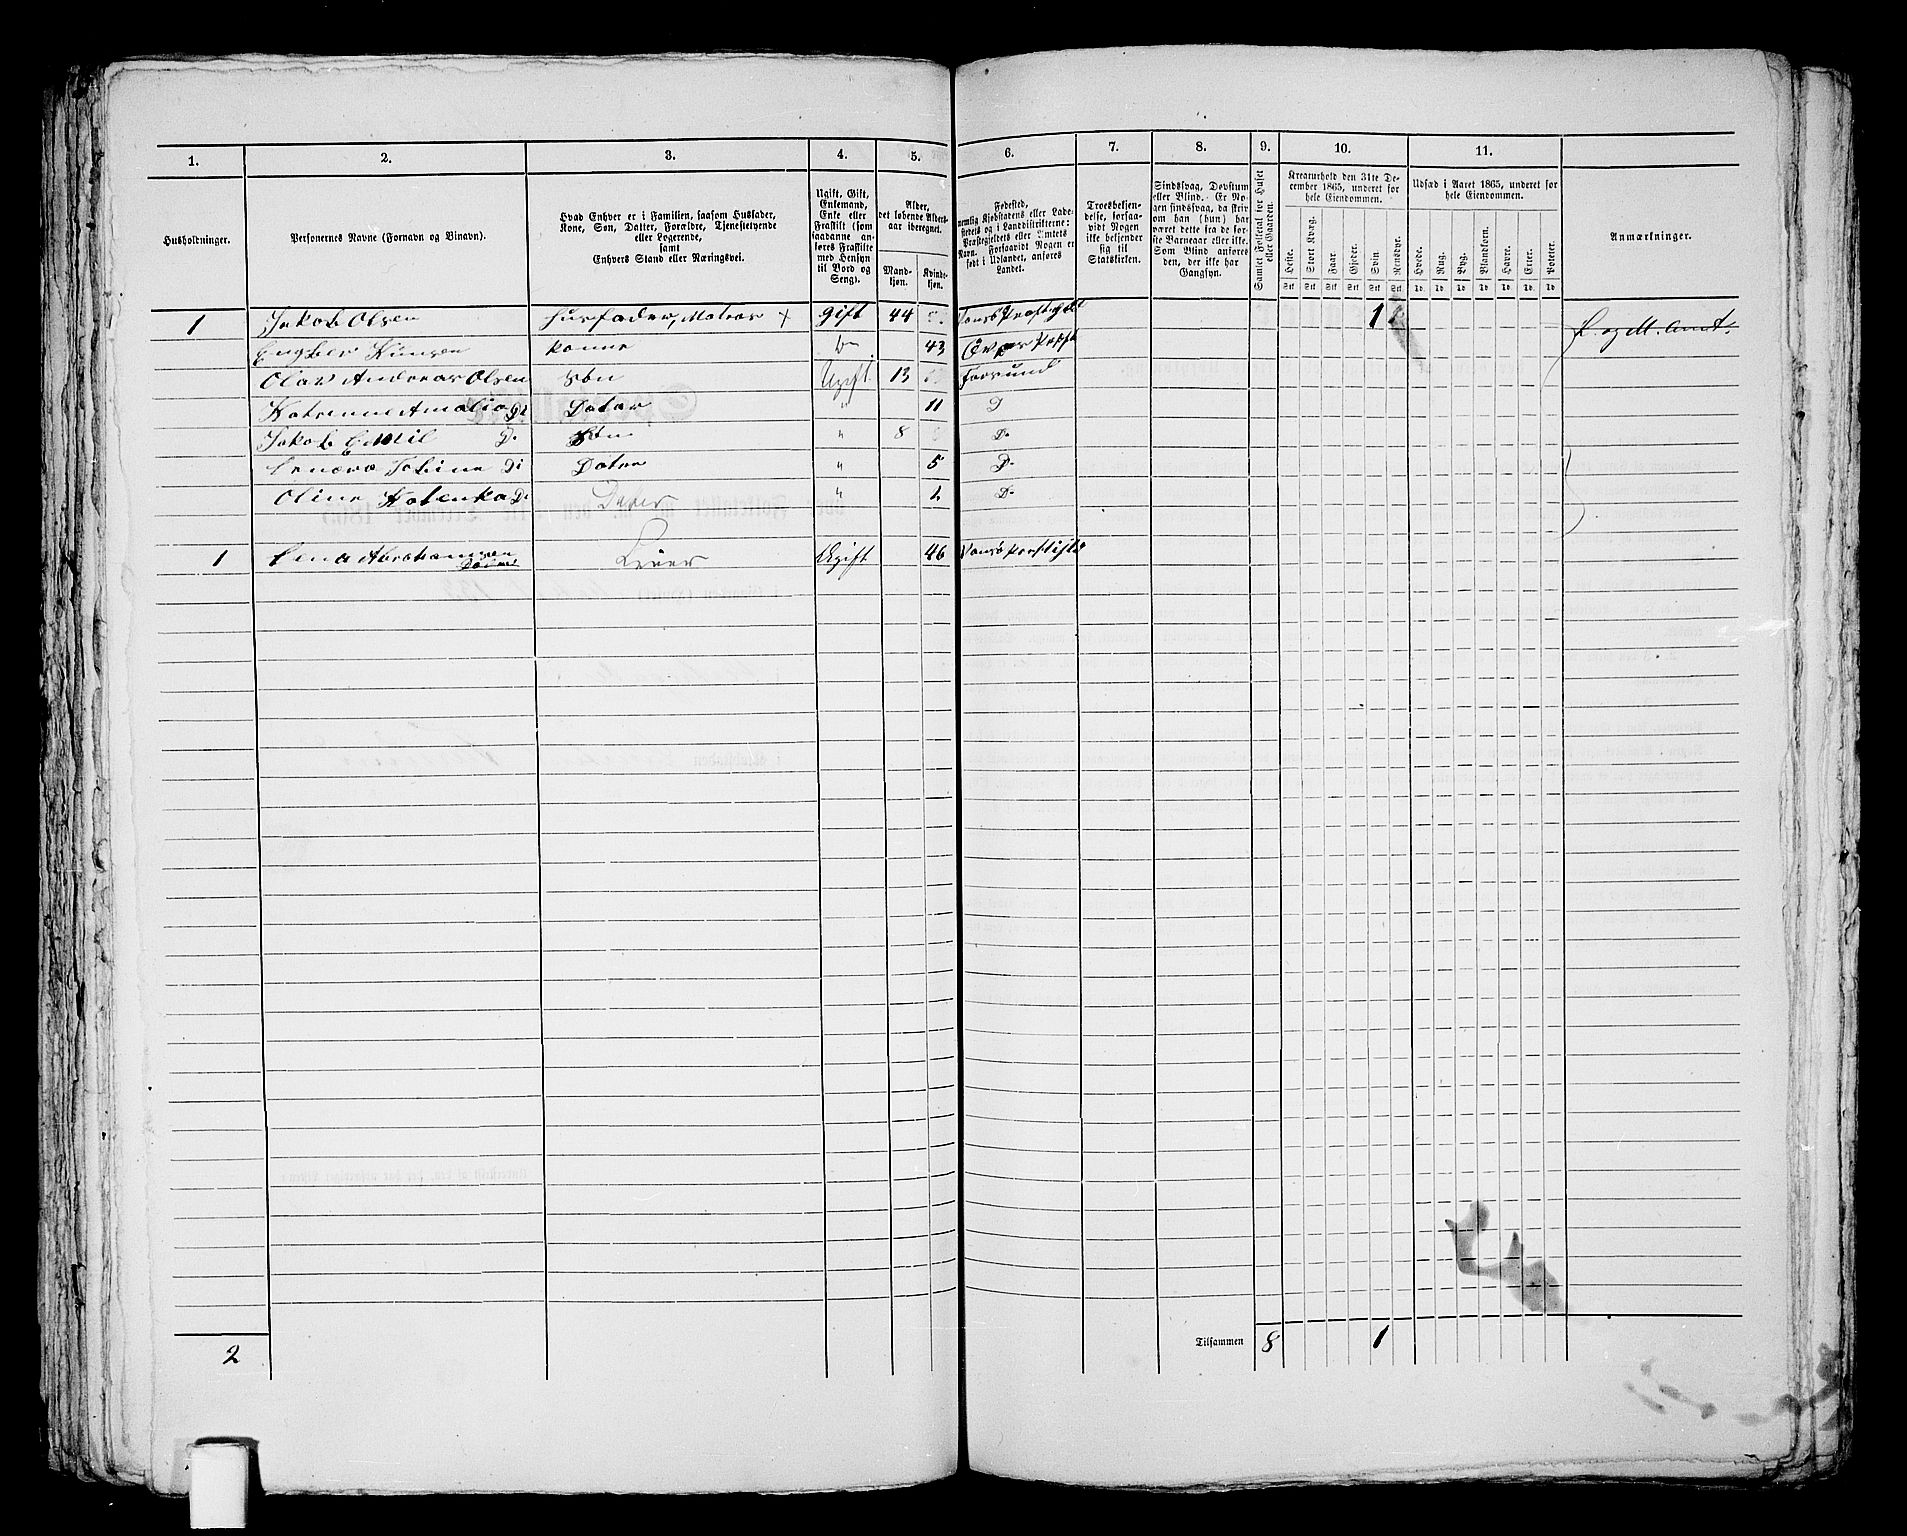 1. 2. 3. 4. 5. 6. 7. 8. 9. 10. 11.
Husholdninger.
Personernes Navne (Fornavn og Binavn).
Hvad Enhver er i Familien, saasom Husfader,
Kone, Søn, Datter, Forældre, Tjenestetyende
eller Logerende,
samt
Enhvers Stand eller Næringsvei.
Ugift, Gift,
Enkemand,
Enke eller
Fraskilt (som
saadanne an-
føres Fraskilte
med Hensyn
til Bord og
Seng).
Alder,
det løbende Alders-
aar iberegnet.
Mand-
kjøn.
Kvinde-
kjøn.
Fødested,
nemlig Kjøbstadens eller Lade-
stedets og i Landdistrikterne:
Præstegjeldets eller Amtets
Navn. Forsaavidt Nogen er
født i Udlandet, anføres
Landet.
Troesbekjen-
delse, forsaa-
vidt Nogen
ikke bekjender
sig til
Statskirken.
Sindssvag, Døvstum
eller Blind. Er No-
gen sindssvag, da skriv
om han (hun) har
været dette fra de før-
ste Barneaar eller ikke.
Som Blind anføres
den, der ikke har
Gangsyn.
Samlet Folketal for Huset
eller Gaarden.
Kreaturhold den 31te De-
cember 1865, underet for
hele Eiendommen.
Heste. Stort Kvæg. Faar. Gjeder. Svin. Rensdyr.
Stk. Stk. Stk. Stk. Stk. Stk.
Udsæd i Aaret 1865, underet for
hele Eiendommen.
Hvede. Rug. Byg. Blandkorn. Havre. Erter. Poteter.
Td. Td. Td. Td. Td. Td. Td.
Anmærkninger.
1 Jakob Olsen Husfader, Matros + gift 44 1 L. og M. Amt.
konne Do 43
Olav Andreas Olsen Søn Ugift 13 Farsund
Katrinne Amalia Di Dater " 11 D
Jakob Emil D. Søn " 8 D.
Di Dater " 5 D.
Oline Di " D.
1 Lena Abrahamsen Ugift 46
2 Tilsammen 8 1